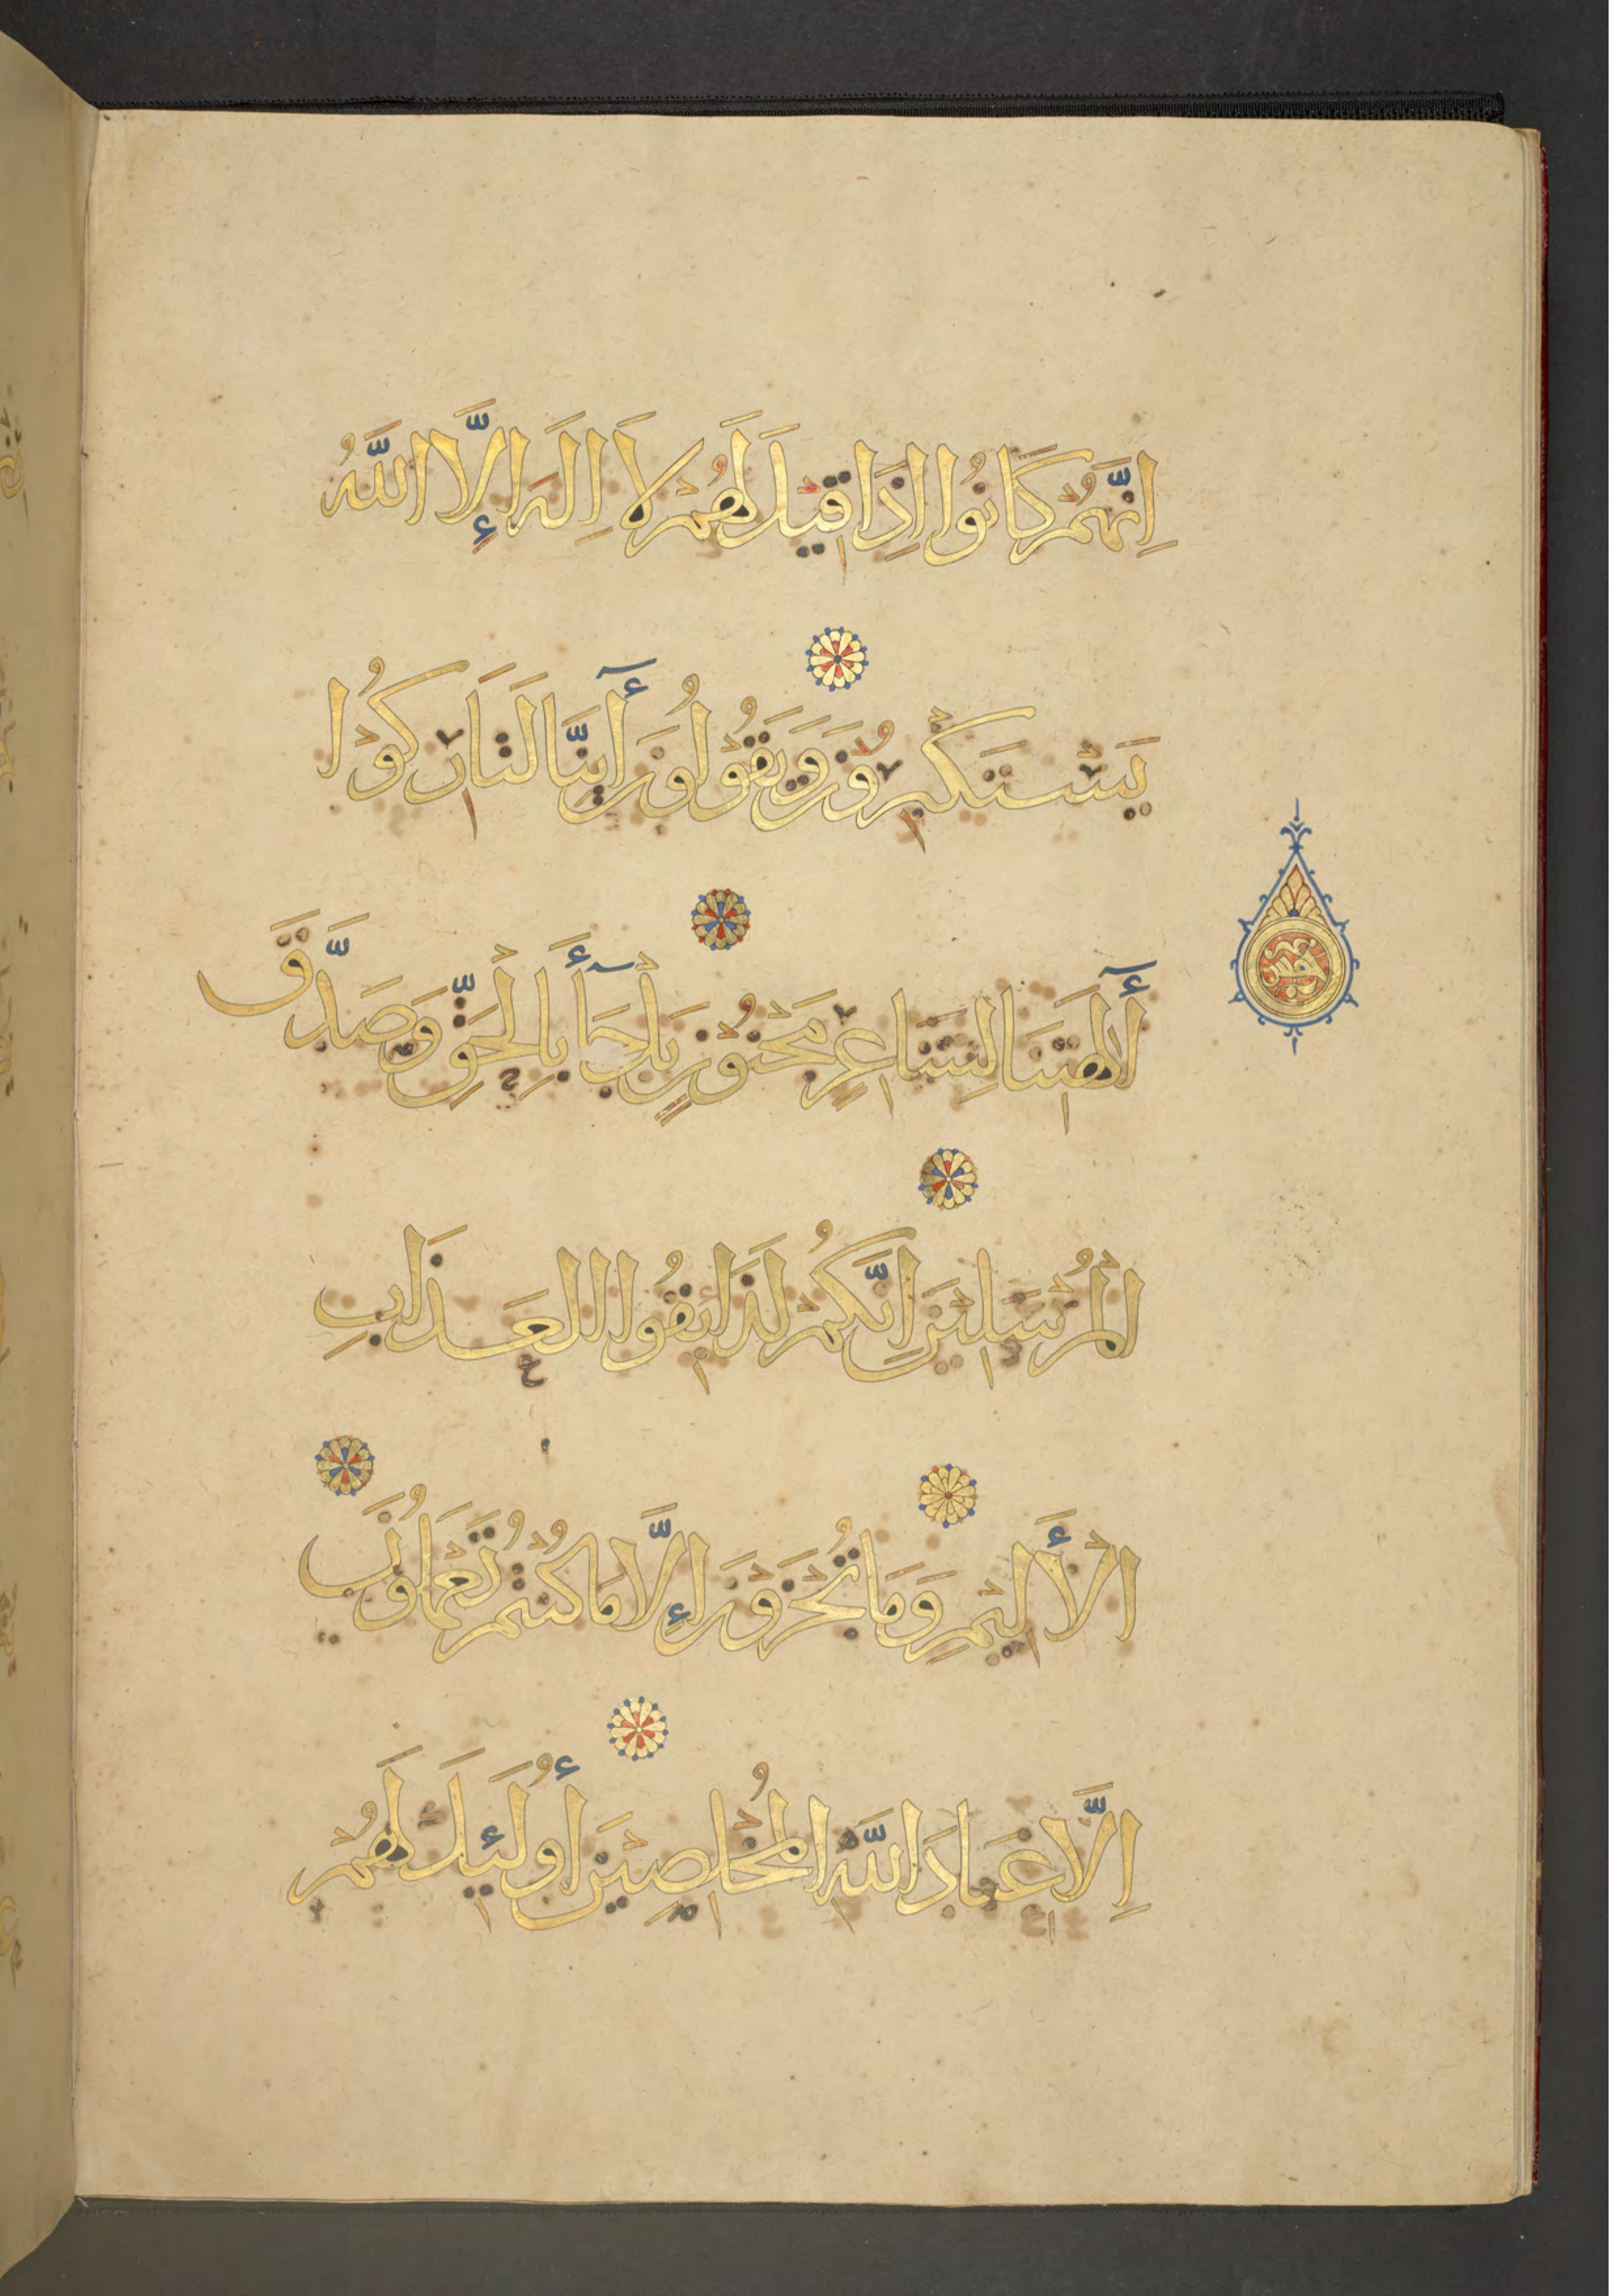 اِنَّهُمْ كَانُوا اِذَا قِيْلَ لَهُمْ لاَ اِلَهَ إِلَّا اللَّهُ
يَسْتَكْبِرُوْنَ وَيَقُوْلُوْنَ أَينَّا لَتَارِكُوْا
أَلِهَتِنَا لِشَاعِرٍ مَجْنُوْنٍ بَلْ جَآءَ بِالْحَقِّ وَصَدَّقَ
الْمُرْسَلِيْنَ اِنَّكُمْ لَذَايِقُوا العَذَابِ
الْأَلِيْمِ وَمَا تُجْزَوْنَ إِلَّا مَا كُنْتُمْ تَعْمَلُوْنَ
اِلَّا عِبَادَ اللَّهِ الْمُخْلَصِيْنَ أُولَئِكَ لَهُمْ